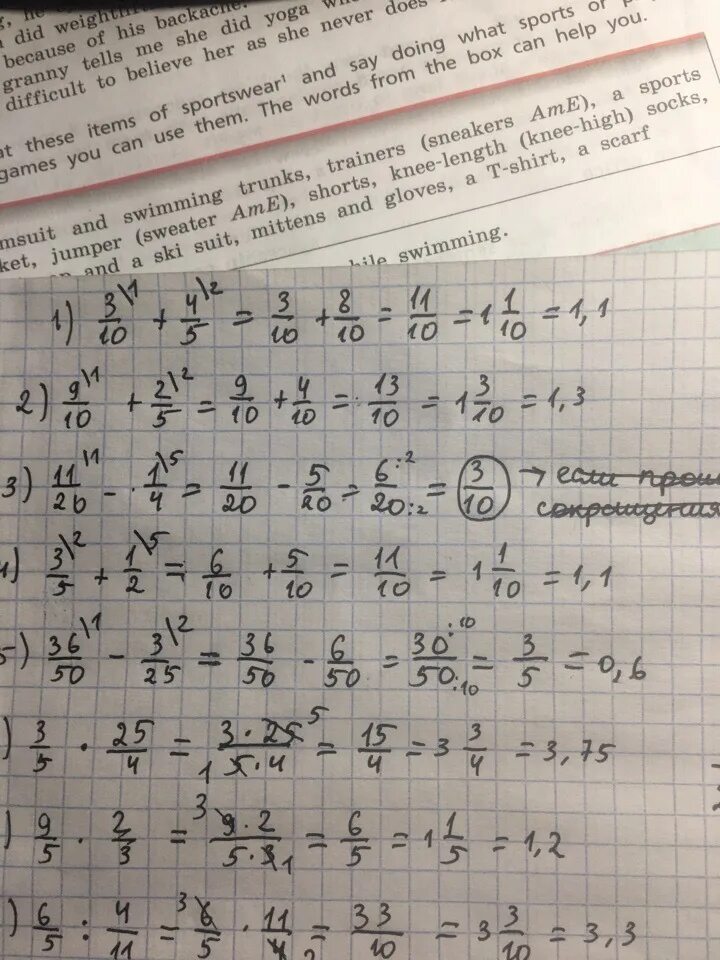 did weightlifting
because of his backache.
granny tells me she did yoga
difficult to believe her as she never does
at these items of sportswear¹ and say doing what sports or
games you can use them. The words from the box can help you.
msuit and swimming trunks, trainers (sneakers AmE), a sports
ket, jumper (sweater AmE), shorts, knee-length (knee-high) socks,
and a ski suit, mittens and gloves, a T-shirt, a scarf
while swimming.
1) 3/10 \1 + 4/5 \2 = 3/10 + 8/10 = 11/10 = 1 1/10 = 1,1
2) 9/10 \1 + 2/5 \2 = 9/10 + 4/10 = 13/10 = 1 3/10 = 1,3
3) 11/20 \1 - 1/4 \5 = 11/20 - 5/20 = 6:2/20:2 = 3/10 → если
4) 3/5 \2 + 1/2 \5 = 6/10 + 5/10 = 11/10 = 1 1/10 = 1,1
5) 36/50 \1 - 3/25 \2 = 36/50 - 6/50 = 30:10/50:10 = 3/5 = 0,6
) 3/5 · 25/4 = 3 · 25 5/1 5 · 4 = 15/4 = 3 3/4 = 3,75
) 9/5 · 2/3 = 3 9 · 2/5 · 3 1 = 6/5 = 1 1/5 = 1,2
) 6/5 : 4/11 = 3 6/5 · 11/4 2 = 33/10 = 3 3/10 = 3,3